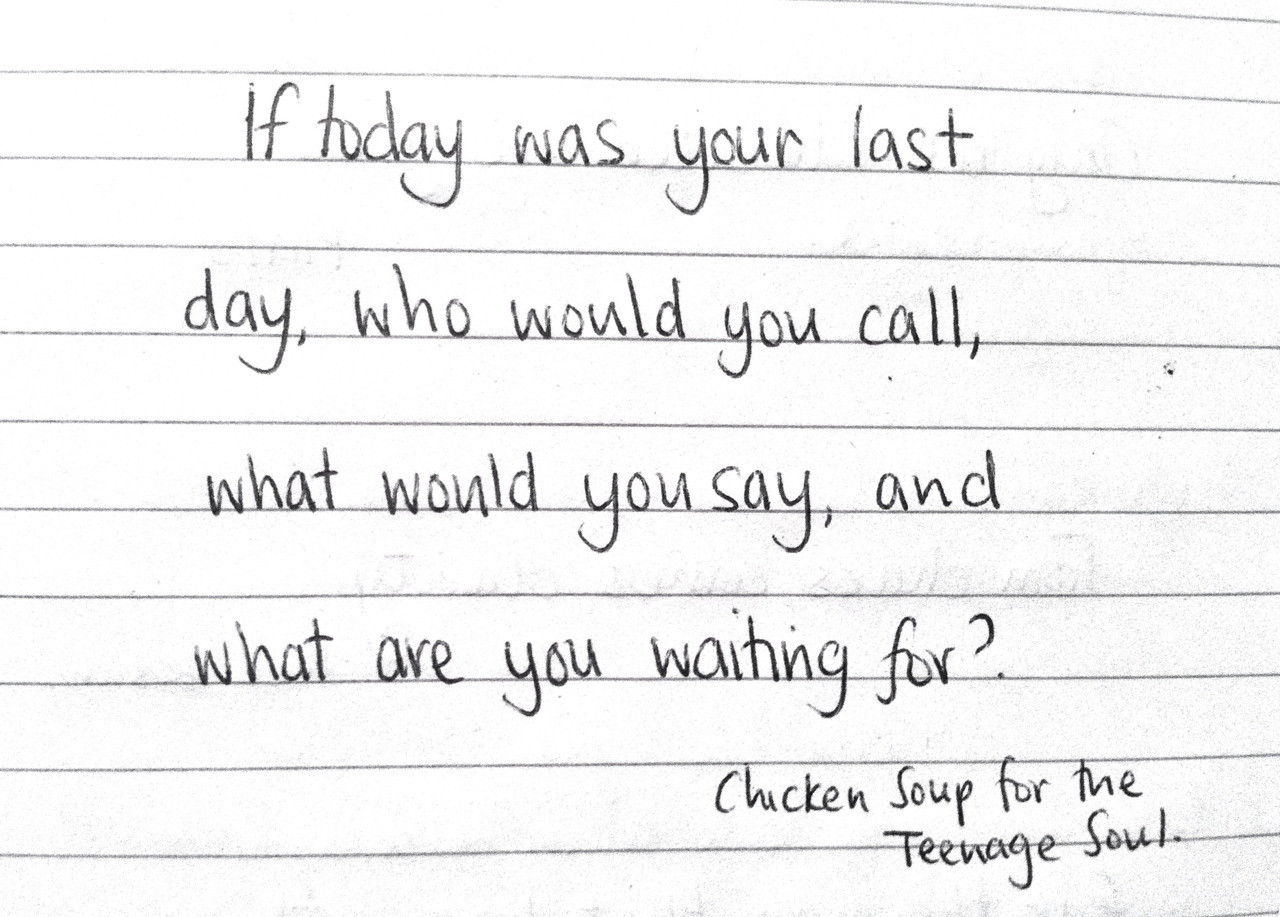 If today was your last
day, who would you call,
what would you say, and
what are you waiting for?
Chicken Soup for the
Teenage Soul.